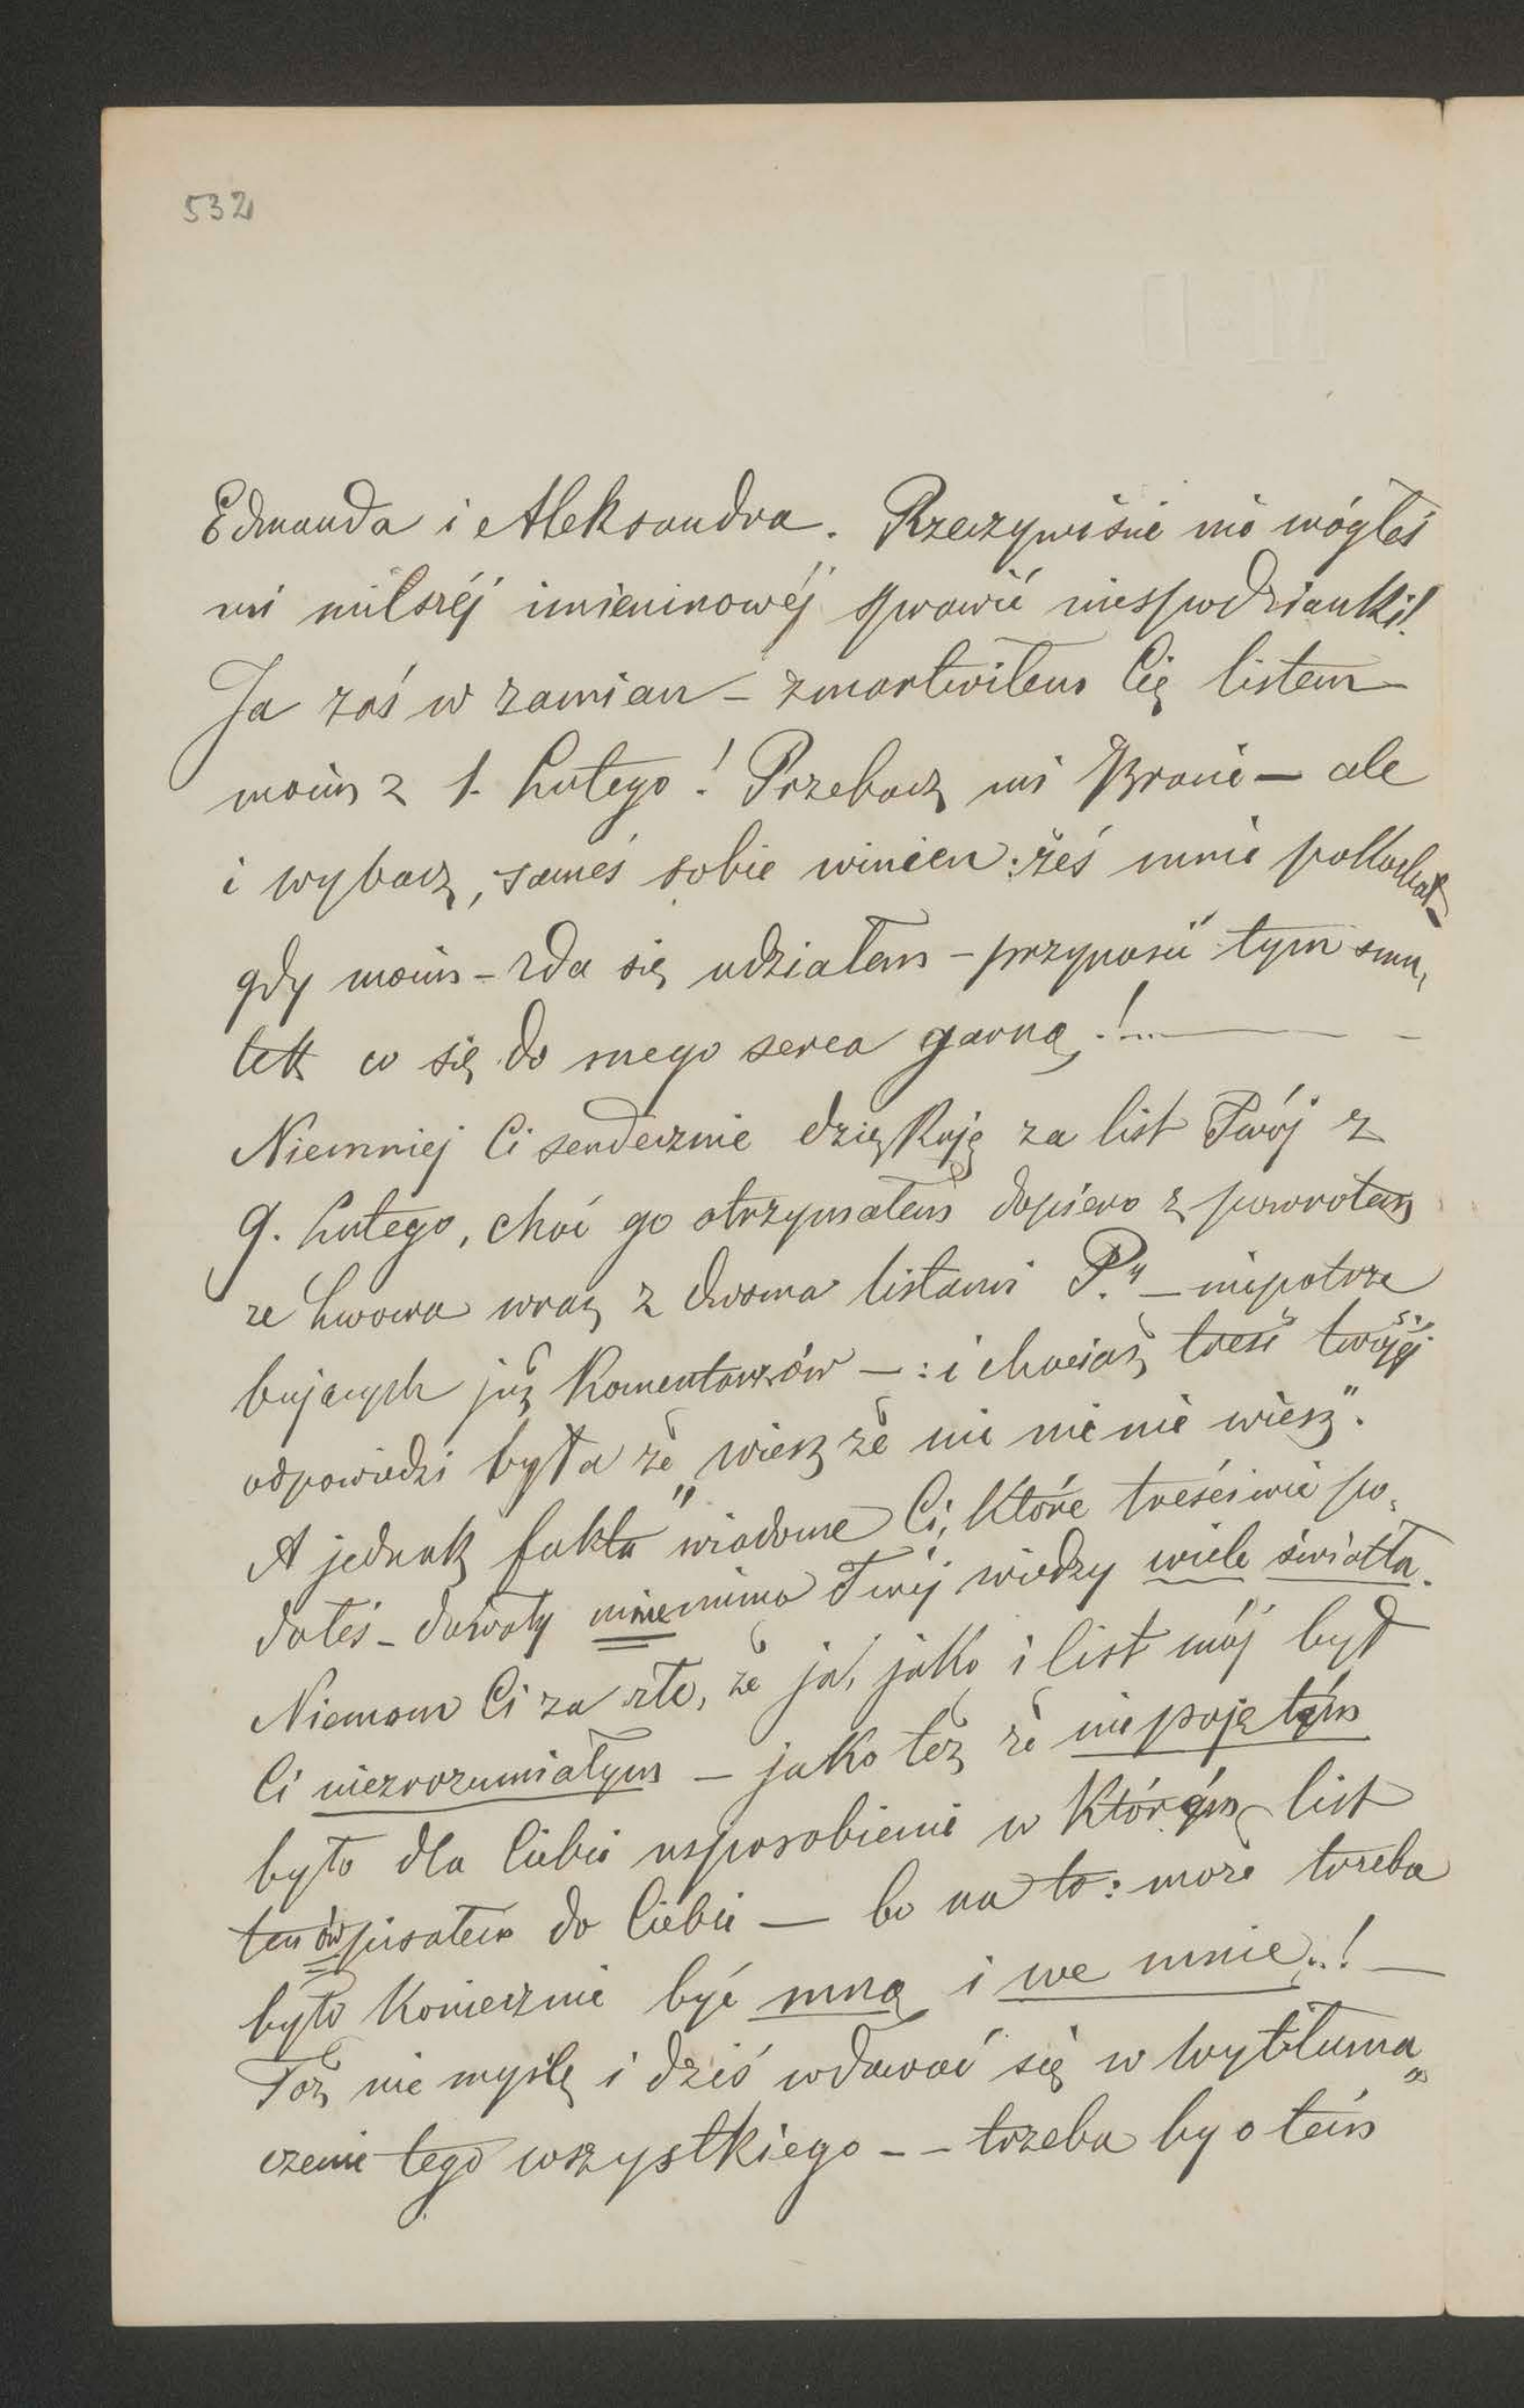 532
Edmunda i Aleksandra. Rzeczywiśie nie mógłeś
mi milszéj imieninowéj sprawić niespodzianki!
Ja zaś w zamian – zmartwiłem Cię listem
moim z 1. Lutego! Przebacz mi Bracie – ale
i wybacz, sameś sobie winien: żeś mnie pokochał
gdy moim – zda się udziałem – przynosić tym smu„
tek co się do mego serca garną!...
Niemniej Ci serdecznie dziękuję za list Twój z
9. Lutego, choć go otrzymałem dopiero z powrotem
ze Lwowa wraz z dwoma listami P.ʸ – niepotrze
bujących już komentarzów –: i chociaż treść twojéj
odpowiedzi była że „wiesz że nic nie nie wiesz".
A jednak fakta wiadome Ci, które treściwie po„
dałeś – dawały mnie mimo Twéj wiedzy wiele światła.
Niemam Ci za złe, że ja, jako i list mój był
Ci niezrozumiałym – jako też że niepojętém
było dla Ciebie usposobienie w którém list
ten ów pisałem do Ciebie – bo na to: może trzeba
było koniecznie być mną i we mnie..! –
Toż nie myślę i dziś wdawać się w wytłuma„
czenie tego wszystkiego – – trzeba by o tém